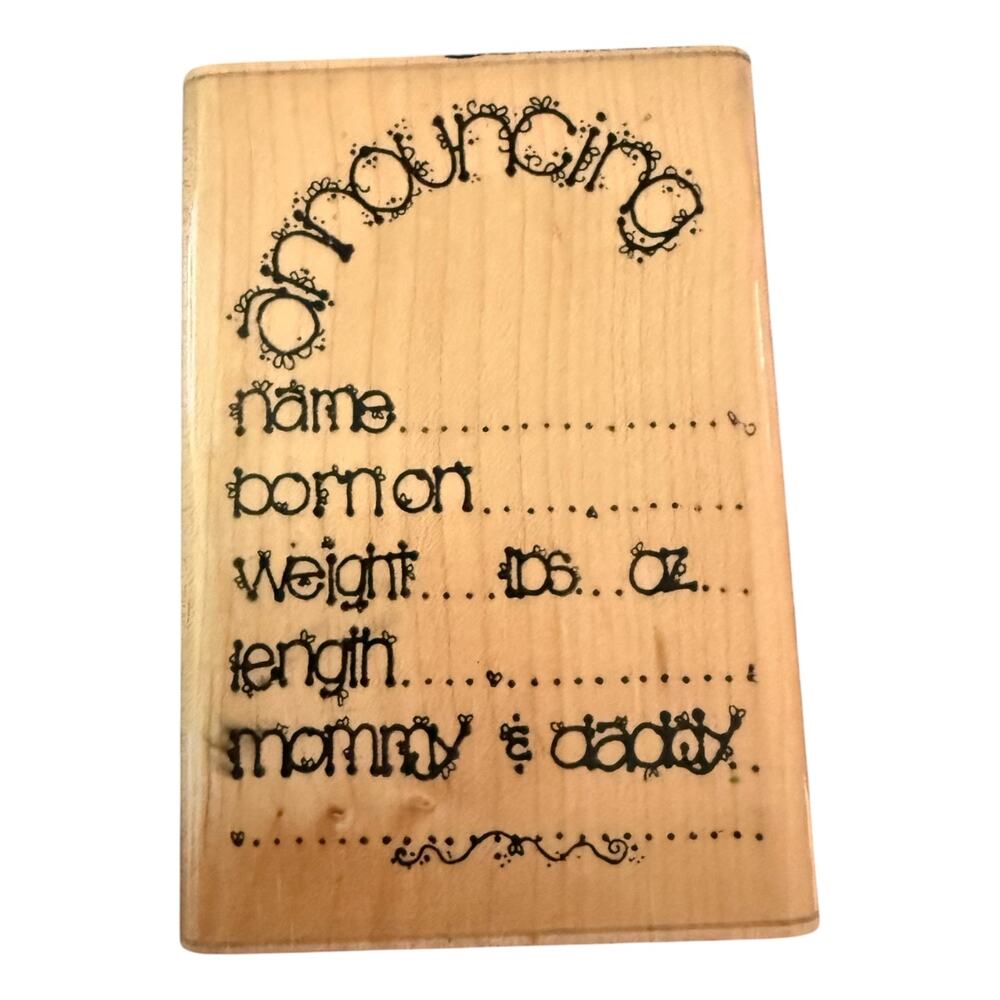 announcing
name................
born on..............
weight....lbs...oz...
length................
mommy & daddy..
............................